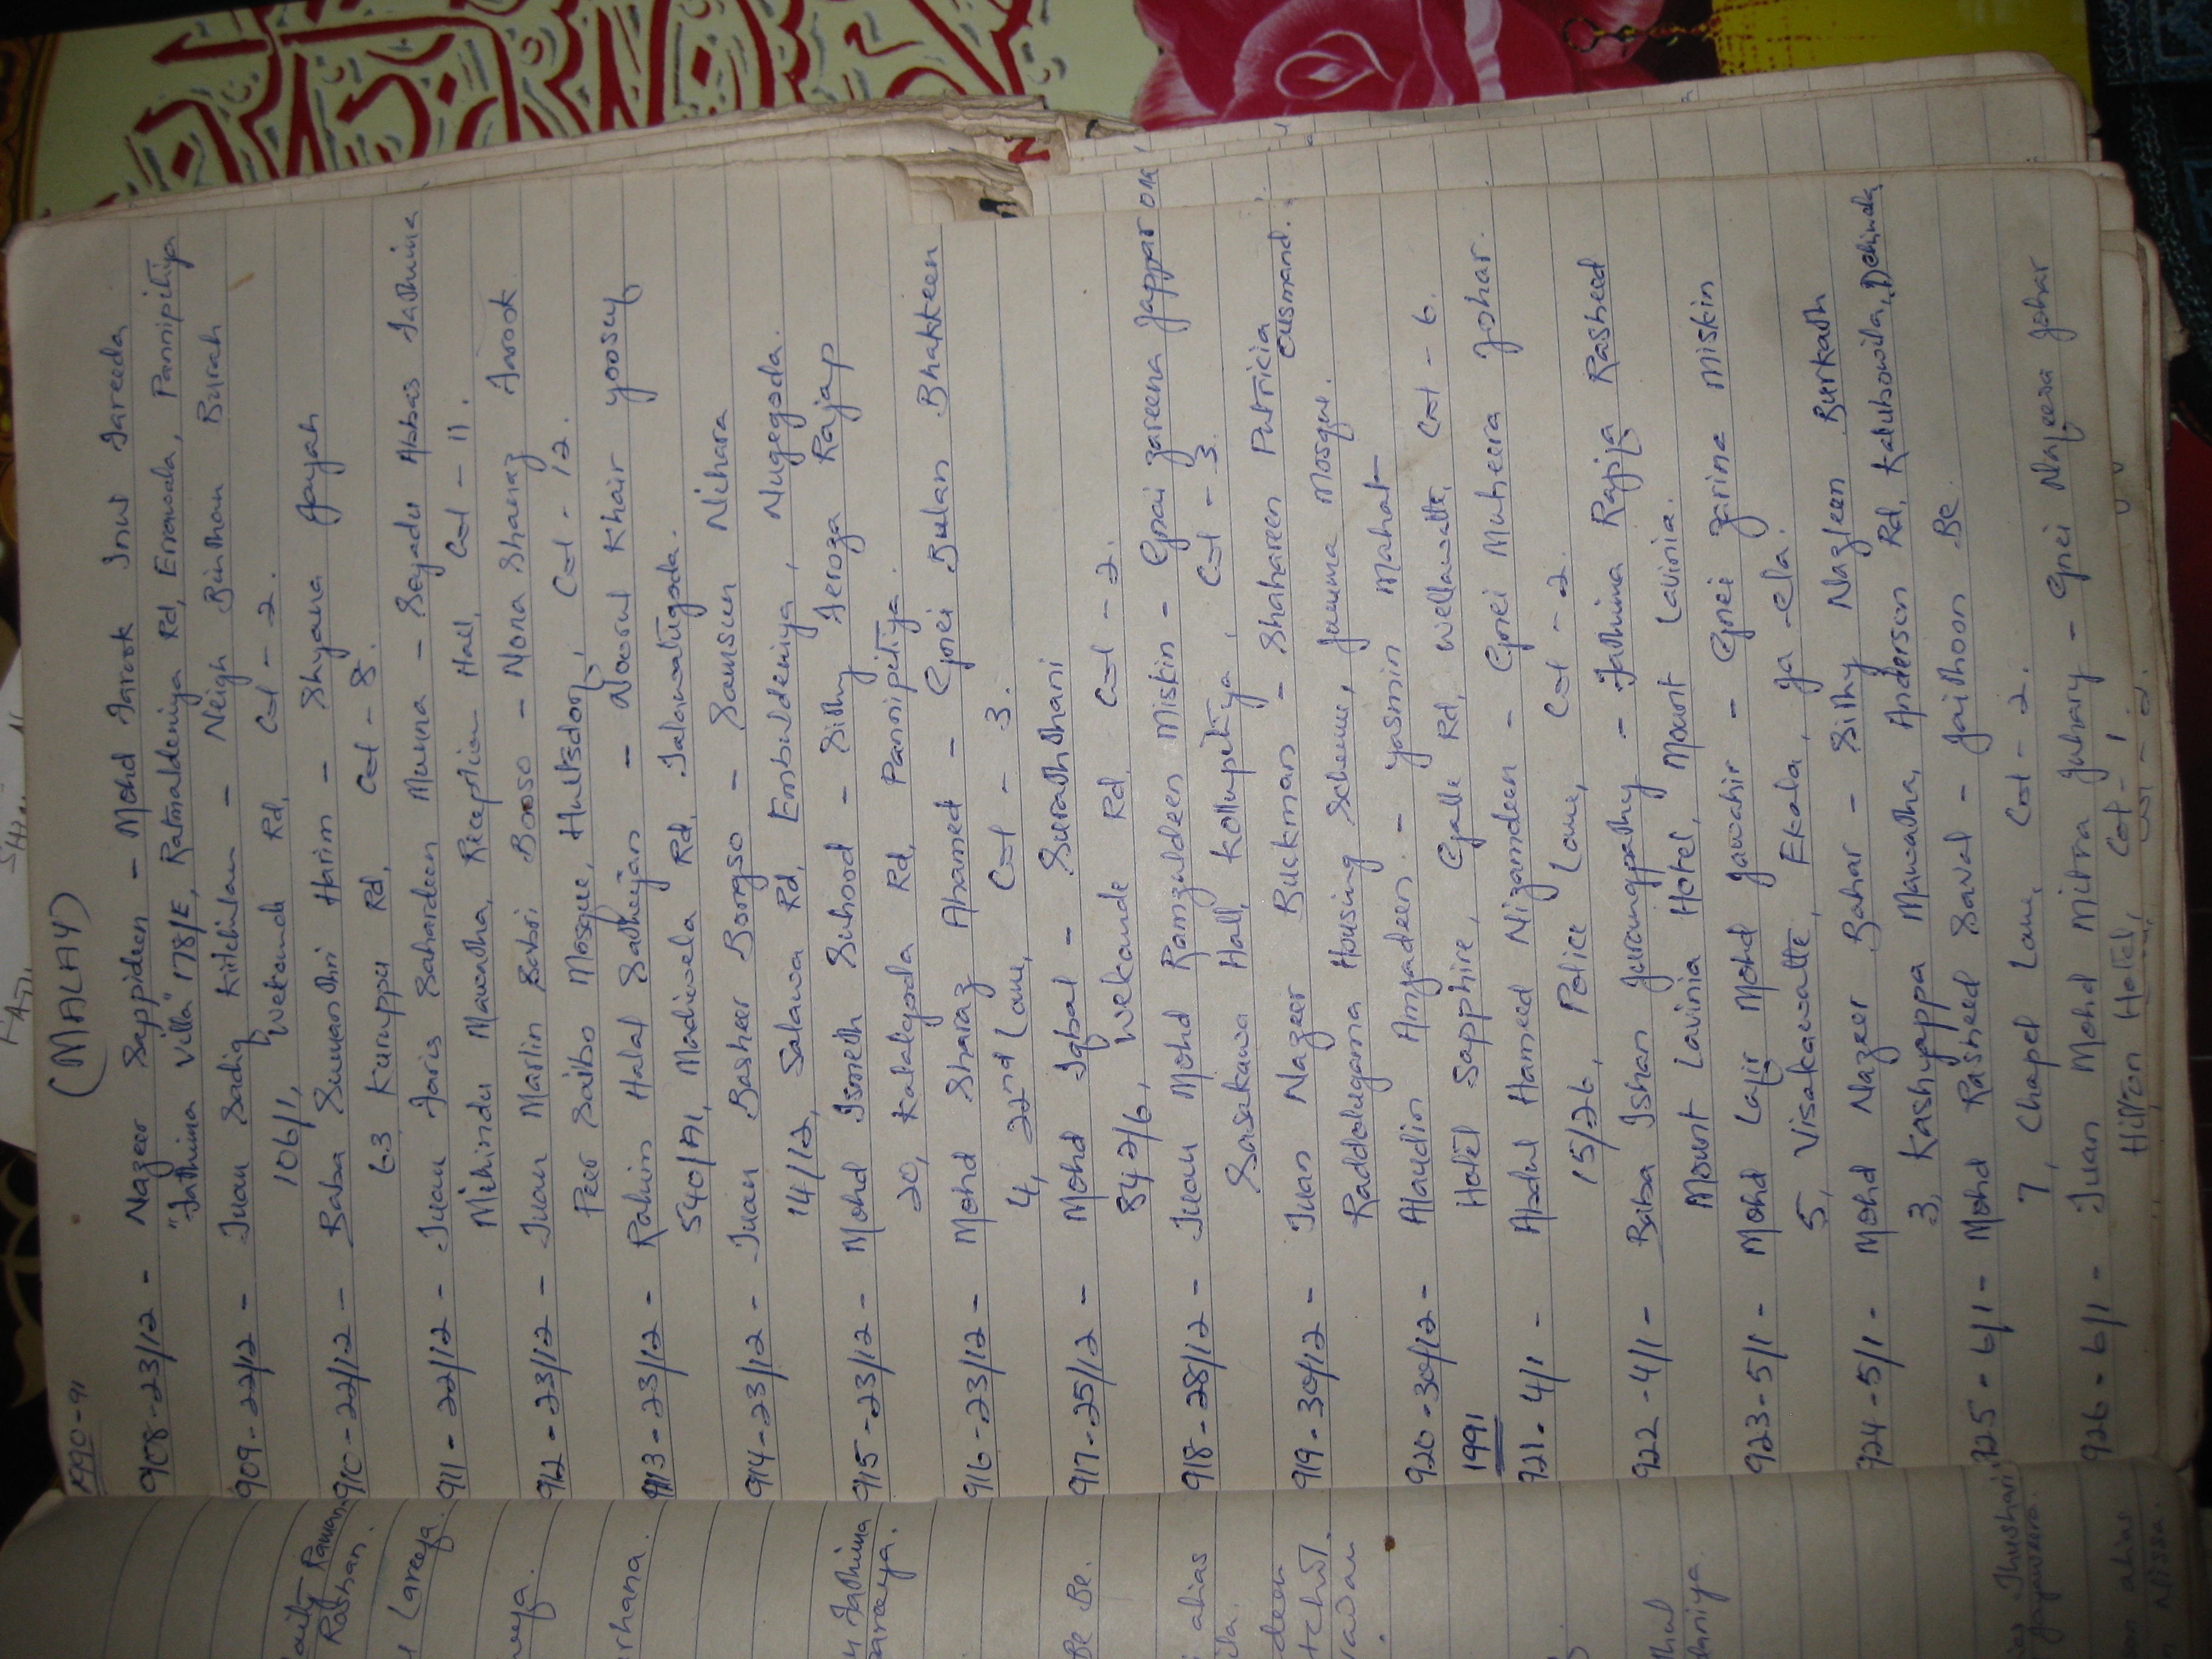 1990-91 (MALAY)
908-23/12 - Nazeer Sappideen - Mohd Farook Inul Fareeda
"Fathima Villa" 178/E, Ratmaldeniya Rd, Errawala, Pannipitiya
909-22/12 - Tuan Sadiq Kitchilan - Neigh Binthan Burah
106/1, Wekanda Rd, Col - 2.
910-22/12 - Baba Sumanthri Harim - Shyana Jayah
63 Kuruppu Rd, Col - 8.
911-22/12 - Tuan Faris Sahardeen Munna - Seyadu Abbas Fathima
Mihindu Mawatha, Reception Hall, Col - 11.
912-23/12 - Tuan Marlin Sabri Booso - Nona Shanaz Farook
Peer Saibo Mosque, Hultsdorf, Col - 12.
913-23/12 - Rahim Halal Satheyan - Noorul Khair Yoosuf
540/A1, Madiwela Rd, Talawatugoda.
914-23/12 - Tuan Basheer Bongso - Samsun Nihara
14/12, Salawa Rd, Embuldeniya, Nugegoda.
915-23/12 - Mohd Ismeth Suhood - Sithy Feroza Rajap
20, Kalalgoda Rd, Pannipitiya.
916-23/12 - Mohd Sharaz Ahamed - Gnei Bulan Bhakkeen
4, 22nd Lane, Col - 3.
917-25/12 - Mohd Iqbal - Suraththani
842/6, Wekande Rd, Col - 2.
918-28/12 - Tuan Mohd Ramzuldeen Miskin - Gnai Zareena Jappar
Sasakawa Hall, Kollupitiya, Col - 3.
919-30/12 - Tuan Nazeer Buckman - Shahareen Patricia
Ousmand.
Raddolugama Housing Scheme, Jumma Mosque.
920-30/12 - Alaudin Amjadeen - Yasmin Mahat
1991 Hotel Sapphire, Galle Rd, Wellawatte, Col - 6.
921-4/1 - Abdul Hameed Nizamdeen - Gnei Muheera Johar.
15/26, Police Lane, Col - 2.
922-4/1 - Baba Ishan Jurangpathy - Fathima Rasheed
Mount Lavinia Hotel, Mount Lavinia.
923-5/1 - Mohd Lafir Mohd Jawahir - Gnei Zarina Miskin
5, Visakawatte, Ekala, Ja-ela.
924-5/1 - Mohd Nazeer Bahar - Sithy Nazleen Burkath
3, Kashyappa Mawatha, Anderson Rd, Kalubowila, Dehiwala
925-6/1 - Mohd Rasheed Saval - Jaithoon Be.
7, Chapel Lane, Col - 2.
926-6/1 - Tuan Mohd Mitra Juhary - Gnei Nafeesa Johar
Hilton Hotel, Col - 1.